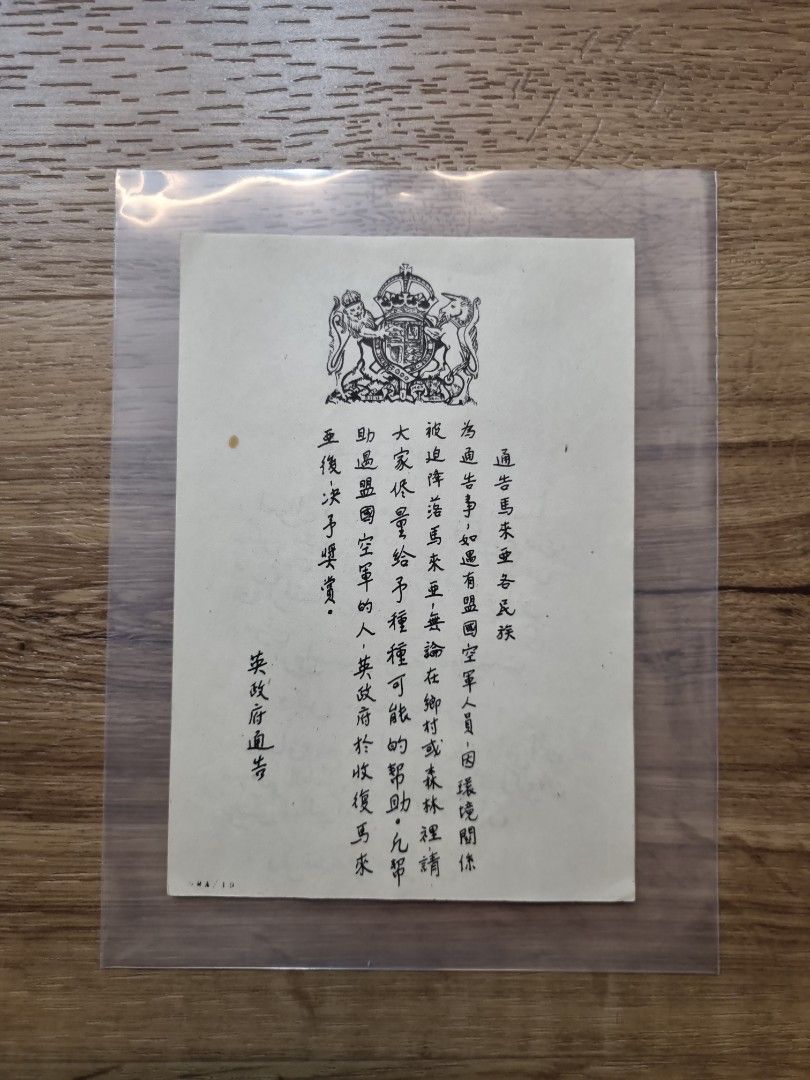 通告馬來亞各民族
為通告事，如遇有盟國空軍人員，因環境關係
被迫降落馬來亞，無論在鄉村或森林裡，請
大家儘量給予種種可能的幫助。凡幫
助過盟國空軍的人，英政府於收復馬來
亞後，決予獎賞。
英政府通告